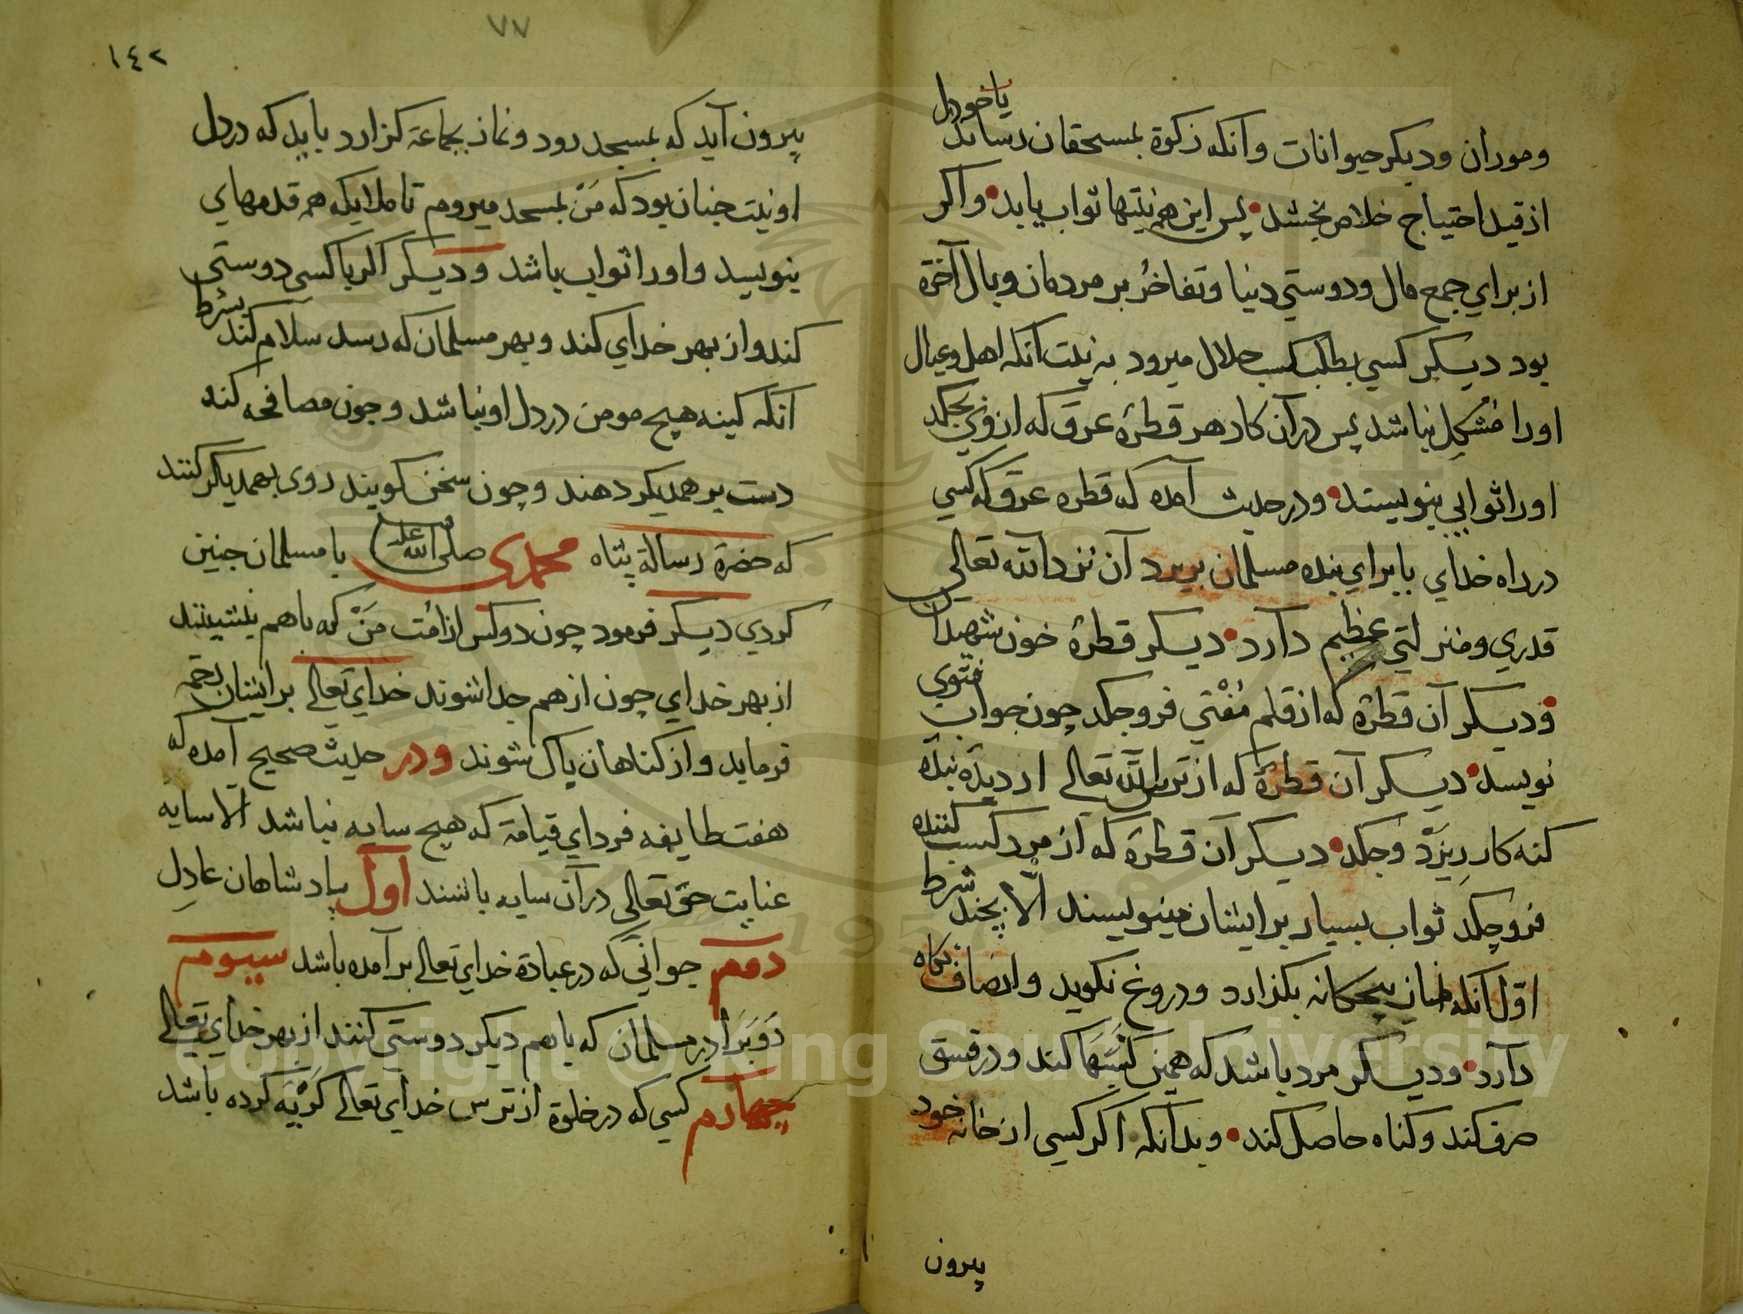 وموران وديكر حيوانات وآنكه زكوة بمستحقان رساند يا خود دل
از قيد احتياج خلاص بخشد پس اين هم نيتها ثواب يابد واكر
از براي جمع مال ودوستي دنيا وتفاخر بر مردمان وبال آخرة
بود ديكر كسي بطلب كسب حلال ميرود به نيت آنكه اهل وعيال
اورا مشكل نباشد پس در آن كار هر قطرهٔ عرق كه از وي بچكد
اورا ثوابي بنويسند ودر حديث آمده كه قطره عرق كه كسي
در راه خداي يا براي بنده مسلمان بريزد آن نزد الله تعالي
قدري ومنزلتي عظيم دارد ديكر قطرهٔ خون شهيدان
وديكر آن قطره كه از قلم مفتي فرو چكد چون جواب فتوي
نويسد ديكر آن قطرهٔ كه از ترس الله تعالي از ديدهٔ بنده
كنه كار ريزد وچكد ديكر آن قطرهٔ كه از مرد كسب كننده
فرو چكد ثواب بسيار بر ايشان مينويسند الا بچند شرط
اول آنكه نماز پنجكانه بكذارد ودروغ نكويد وانصاف نكاه
دارد وديكر مرد باشد كه همين كسبها كند ودر فسق
صرف كند وكناه حاصل كند وبدانكه اكر كسي از خانه خود
پيرون
٧٧
١٤٢
پيرون آيد كه بمسجد رود ونماز بجماعة كزارد بايد كه در دل
او نيت چنان بود كه من بمسجد ميروم تا ملايكه هم قدمهاي
بنويسد واورا ثواب باشد وديكر اكر با كسي دوستي
كند واز بهر خداي كند وبهر مسلمان كه رسد سلام كند بشرط
آنكه كينه هيچ مومن در دل او نباشد وچون مصافحه كند
دست بر همديكر دهند وچون سخن كويند روي بهمديكر كنند
كه حضرة رسالة پناه محمدي صلى الله عليه با مسلمان چنين
كردي ديكر فرمود چون دو كس از امت من كه باهم بنشينند
از بهر خداي چون از هم جدا شوند خداي تعالى بر ايشان رحمة
فرمايد واز كناهان پاك شوند ودر حديث صحيح آمده كه
هفت طايفه فرداي قيامة كه هيچ سايه نباشد الا سايه
عنايت حق تعالى در آن سايه باشند اول پادشاهان عادل
دوم جواني كه در عبادة خداي تعالى بر آمده باشد سيوم
دو برادر مسلمان كه باهم ديكر دوستي كنند از بهر خداي تعالى
چهارم كسي كه در خلوة از ترس خداي تعالى كريه كرده باشد
Copyright © King Saud University